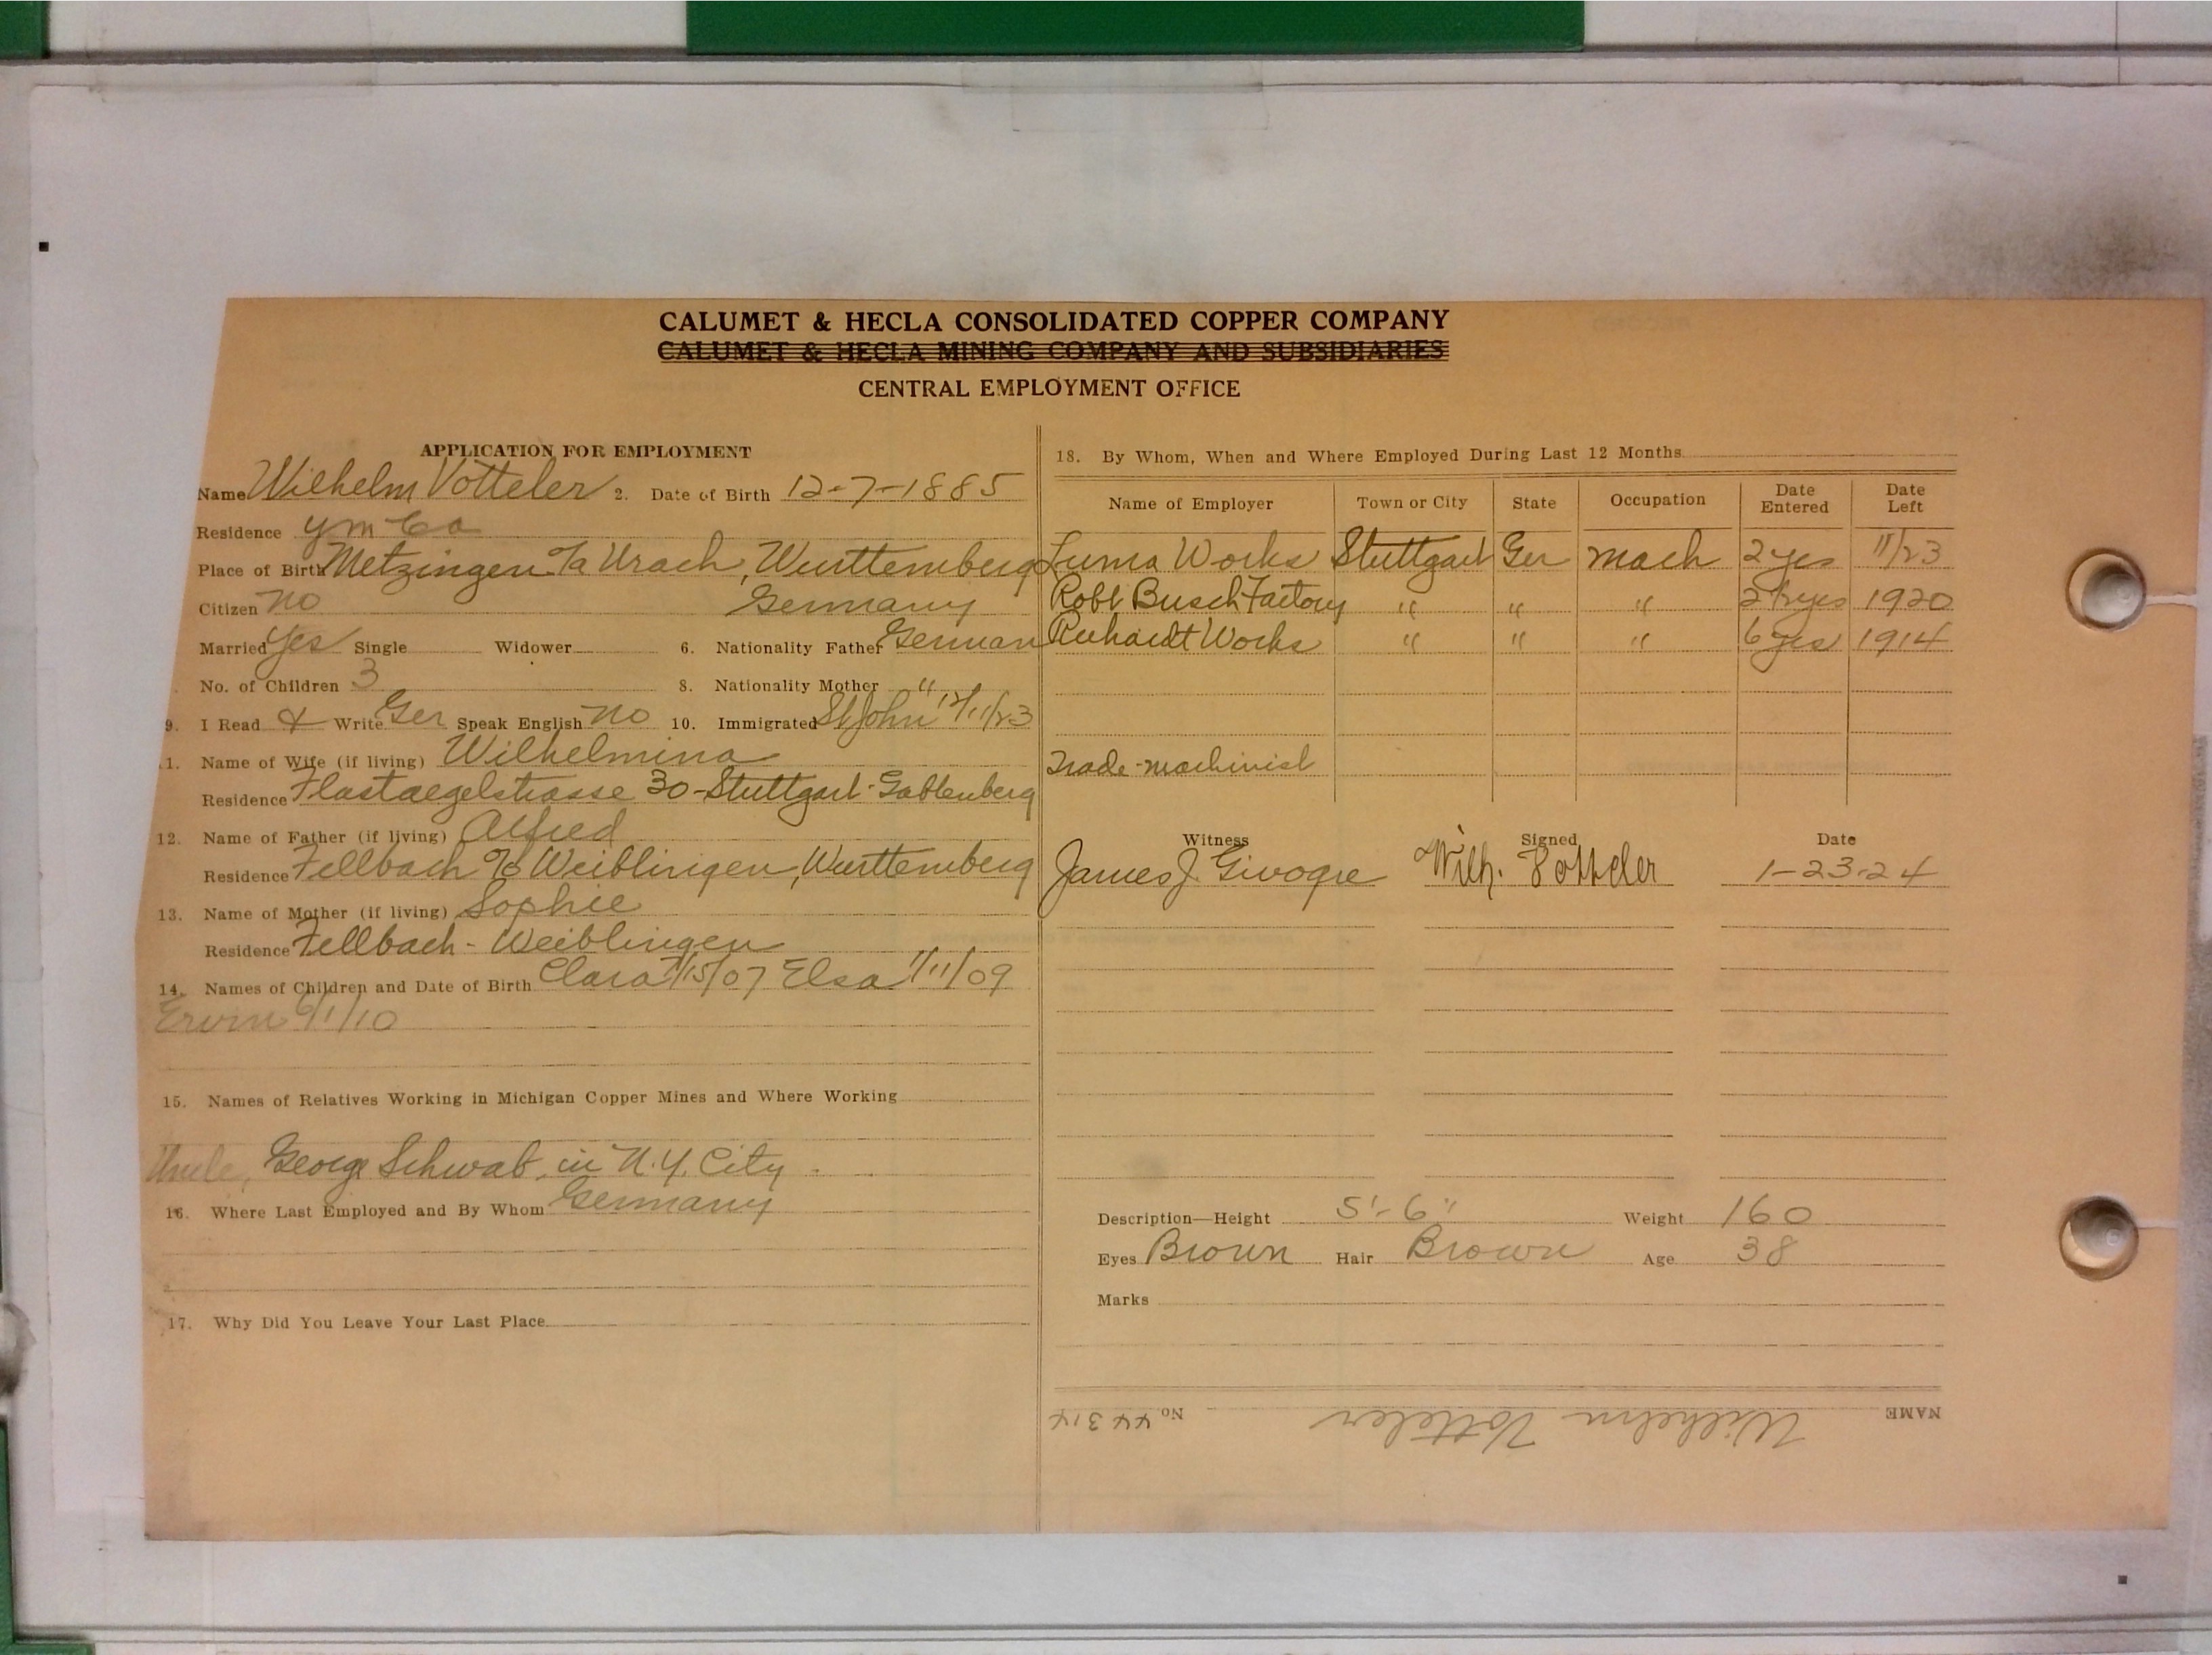 CALUMET & HECLA CONSOLIDATED COPPER COMPANY
CALUMET & HECLA MINING COMPANY AND SUBSIDIARIES
CENTRAL EMPLOYMENT OFFICE
APPLICATION FOR EMPLOYMENT
Name Wilhelm Votteler 2. Date of Birth 12-7-1885
Residence YMCA
Place of Birth Metzingen O/a Urach, Wurttemberg
Citizen no Germany
Married Yes Single Widower 6. Nationality Father German
No. of Children 3 8. Nationality Mother "
9. I Read & Write Ger Speak English no 10. Immigrated St John 12/11/23
1. Name of Wife (if living) Wilhelmina
Residence 30-Stuttgart-Gablenberg
12. Name of Father (if living) Alfred
Residence Fellbach Weiblingen, Wurttemberg
13. Name of Mother (if living) Sophie
Residence Fellbach - Weiblingen
14. Names of Children and Date of Birth Clara 7/15/07 Elsa 1/11/09
Ervin 6/1/10
15. Names of Relatives Working in Michigan Copper Mines and Where Working
Uncle, George Schwab, in N.Y. City
16. Where Last Employed and By Whom Germany
17. Why Did You Leave Your Last Place
18. By Whom, When and Where Employed During Last 12 Months
Name of Employer Town or City State Occupation Date Entered Date Left
Luma Works Stuttgart Ger mach 2 yrs 11/23
Robt Busch Factory " " " yrs 1920
Works " " " 6 yrs 1914
Trade-machinist
Witness Signed Date
James J. Givogre Wilh. Votteler 1-23-24
Description—Height 5'-6" Weight 160
Eyes Brown Hair Brown Age 38
Marks
NAME Wilhelm Votteler No. 44314